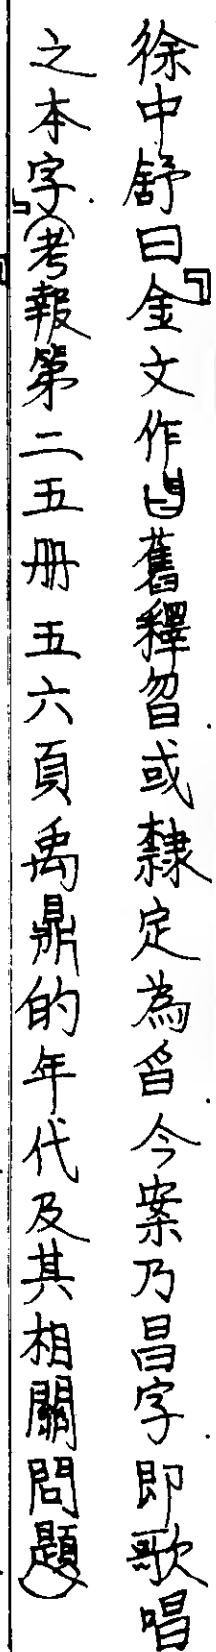 徐中舒曰『金文作舊釋曶或隸定為㫚今案乃昌字即歌唱
之本字』(考報第二五册五六頁禹鼎的年代及其相關問題)